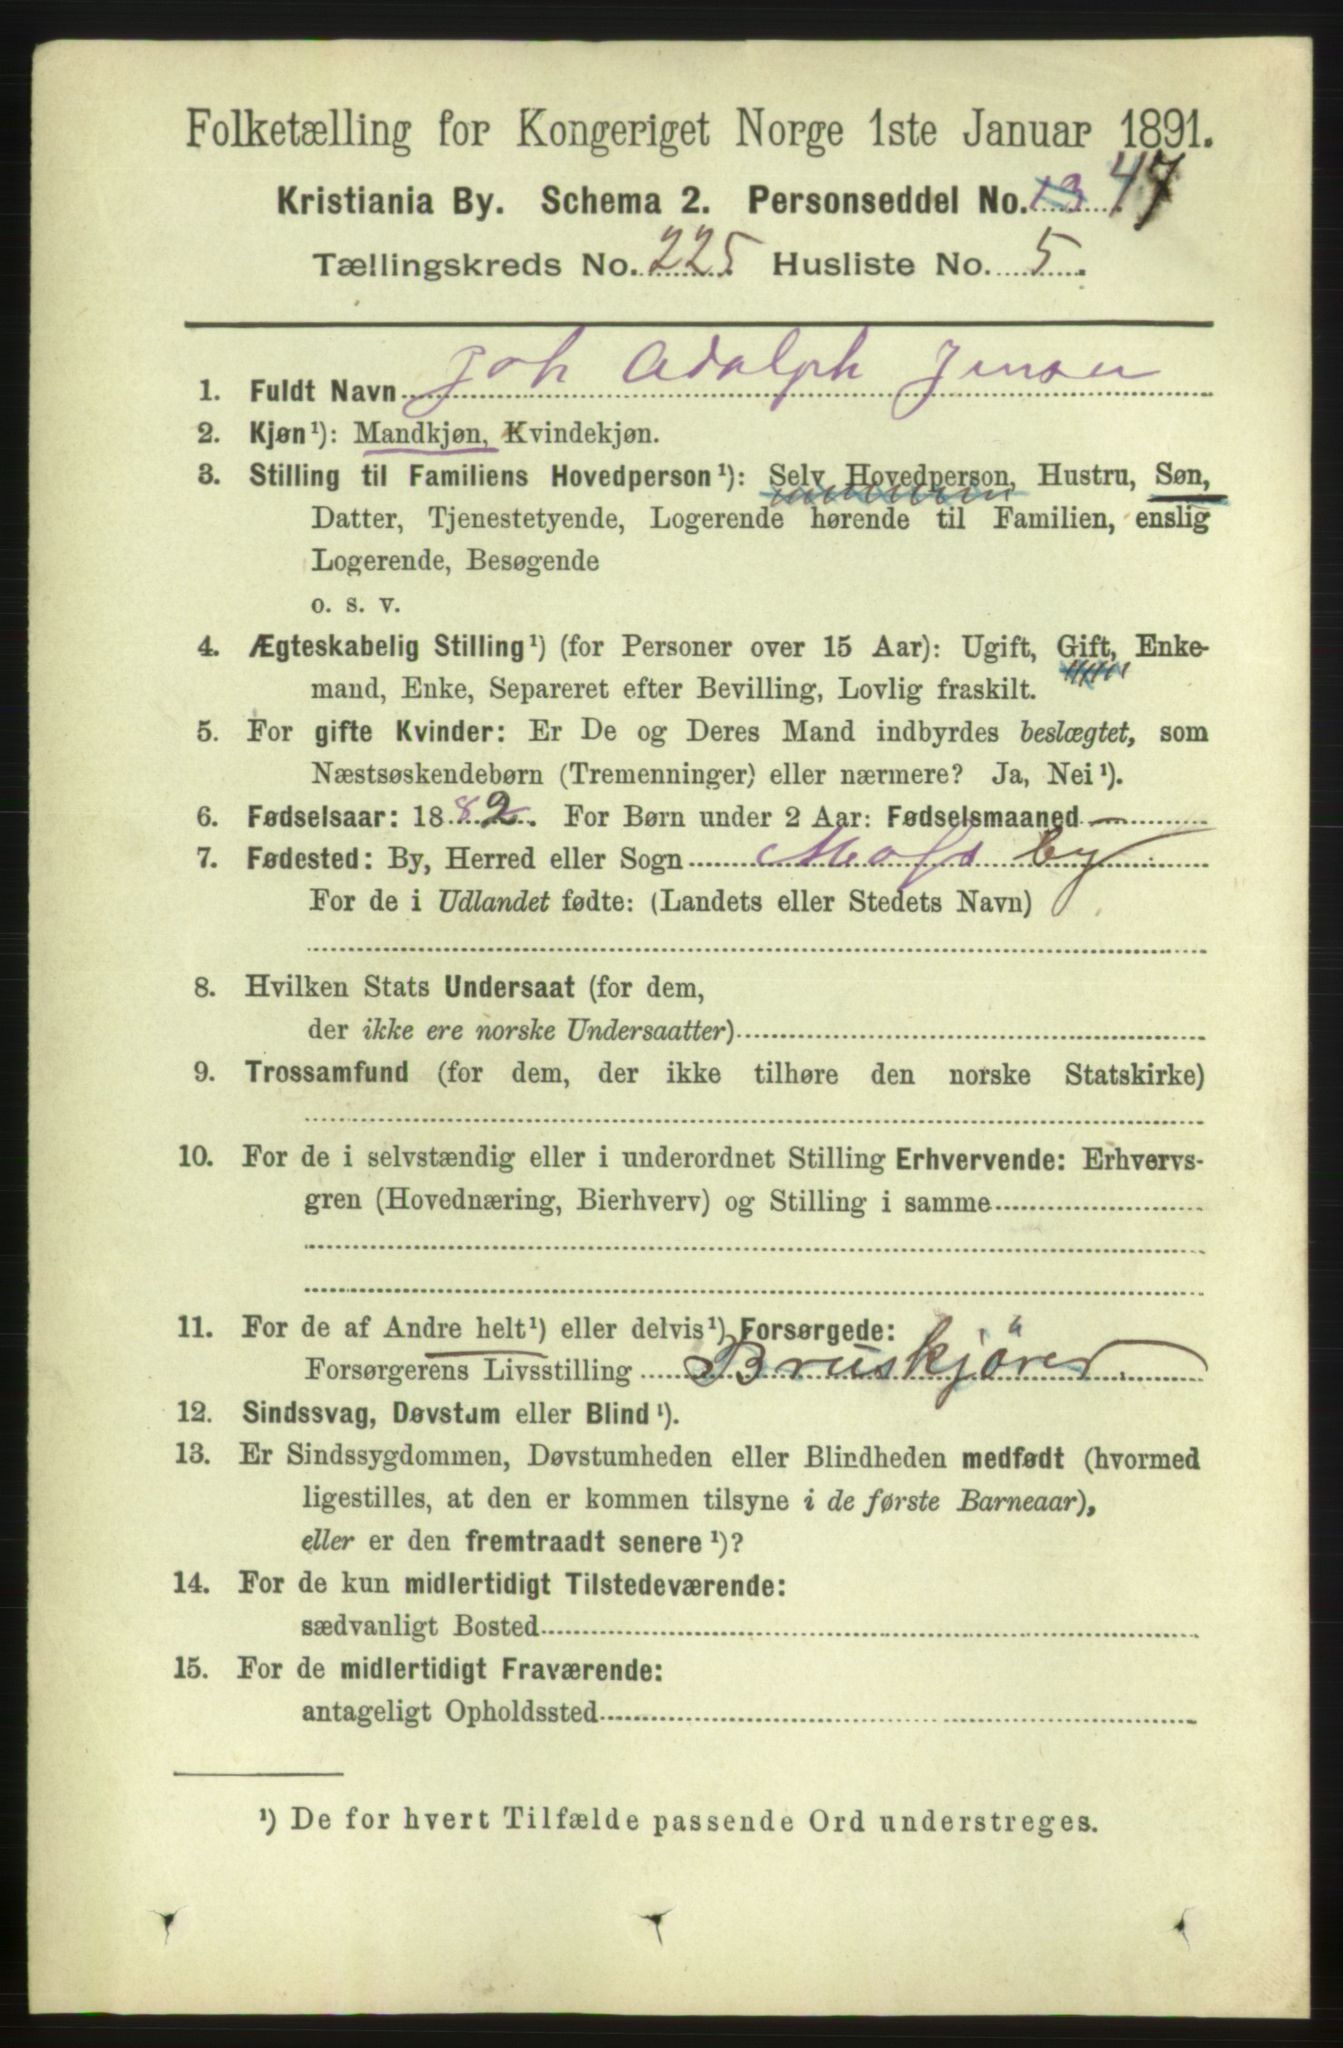 Folketælling for Kongeriget Norge 1ste Januar 1891.
Kristiania By. Schema 2. Personseddel No. 13 47
Tællingskreds No. 225. Husliste No. 5.
1. Fuldt Navn Joh Adolph Jensen
2. Kjøn¹): Mandkjøn, Kvindekjøn.
3. Stilling til Familiens Hovedperson¹): Selv Hovedperson, Hustru, Søn,
Datter, Tjenestetyende, Logerende hørende til Familien, enslig
Logerende, Besøgende
o. s. v.
4. Ægteskabelig Stilling¹) (for Personer over 15 Aar): Ugift, Gift, Enke-
mand, Enke, Separeret efter Bevilling, Lovlig fraskilt.
5. For gifte Kvinder: Er De og Deres Mand indbyrdes beslægtet, som
Næstsøskendebørn (Tremenninger) eller nærmere? Ja, Nei¹).
6. Fødselsaar: 1882. For Børn under 2 Aar: Fødselsmaaned —
7. Fødested: By, Herred eller Sogn Moss by
For de i Udlandet fødte: (Landets eller Stedets Navn)
8. Hvilken Stats Undersaat (for dem,
der ikke ere norske Undersaatter)
9. Trossamfund (for dem, der ikke tilhøre den norske Statskirke)
10. For de i selvstændig eller i underordnet Stilling Erhvervende: Erhvervs-
gren (Hovednæring, Bierhverv) og Stilling i samme
11. For de af Andre helt¹) eller delvis¹) Forsørgede:
Forsørgerens Livsstilling Bruskjörer
12. Sindssvag, Døvstum eller Blind¹).
13. Er Sindssygdommen, Døvstumheden eller Blindheden medfødt (hvormed
ligestilles, at den er kommen tilsyne i de første Barneaar),
eller er den fremtraadt senere¹)?
14. For de kun midlertidigt Tilstedeværende:
sædvanligt Bosted
15. For de midlertidigt Fraværende:
antageligt Opholdssted
¹) De for hvert Tilfælde passende Ord understreges.